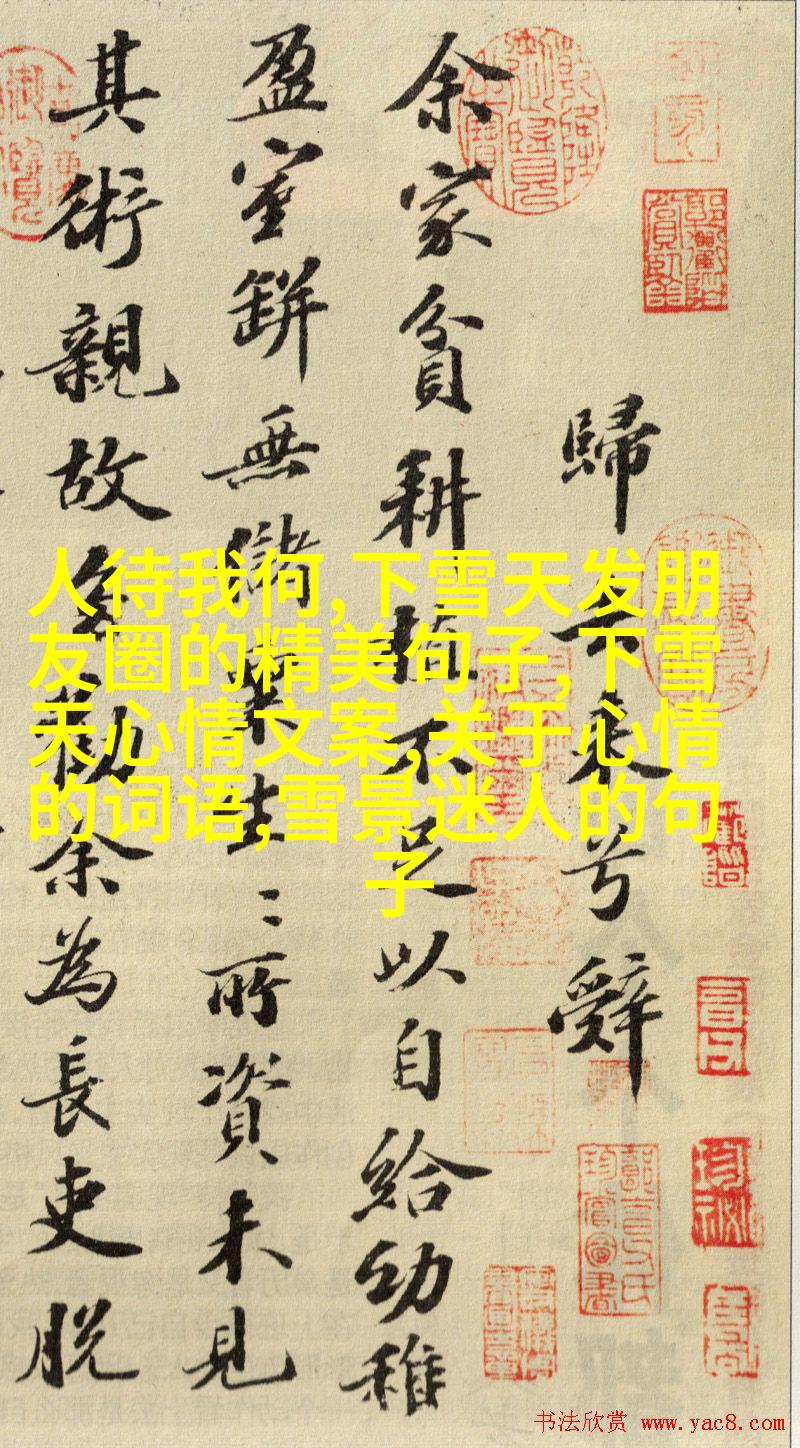 歸去来兮辭
余家貧耕植不足以自給幼稚
盈室缾無儲粟生〻所資未見
其術親故多勸余為長吏脱
人待我何,下雪天发朋
友圈的精美句子,下雪
天心情文案,关于心情
的词语,雪景迷人的句
子
书法欣赏 www.yac8.com